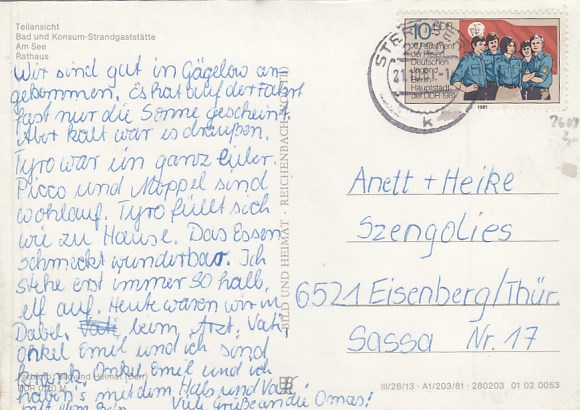 Teilansicht
Bad und Konsum-Strandgaststätte
Am See
Rathaus
Wir sind gut in Gägelow an
gekommen. Es hat auf der Fahrt
fast nur die Sonne gescheint.
Aber kalt war es draußen.
Tyro war ein ganz Eiler.
Picco und Moppel sind
wohlauf. Tyro füllt sich
wie zu Hause. Das Essen
schmeckt wunderbar. Ich
stehe erst immer so halb
elf auf. Heute waren wir in
Dabel, beim Arzt. Vati,
onkel Emil und ich sind
krank. Onkel Emil und ich
haben's mit dem Hals und Vati
mit dem
Viele Grüße an die Omas!
BILD UND HEIMAT · REICHENBACH
10 DDR
XI. Parlament
der Freien
Deutschen
Jugend
Berlin
Hauptstadt
der DDR 1981
1981
STERNBE
21
k
2609
Anett + Heike
Szengolies
6521 Eisenberg/Thür.
Sassa Nr. 17
III/26/13 · A1/203/81 · 280203 01 02 0053